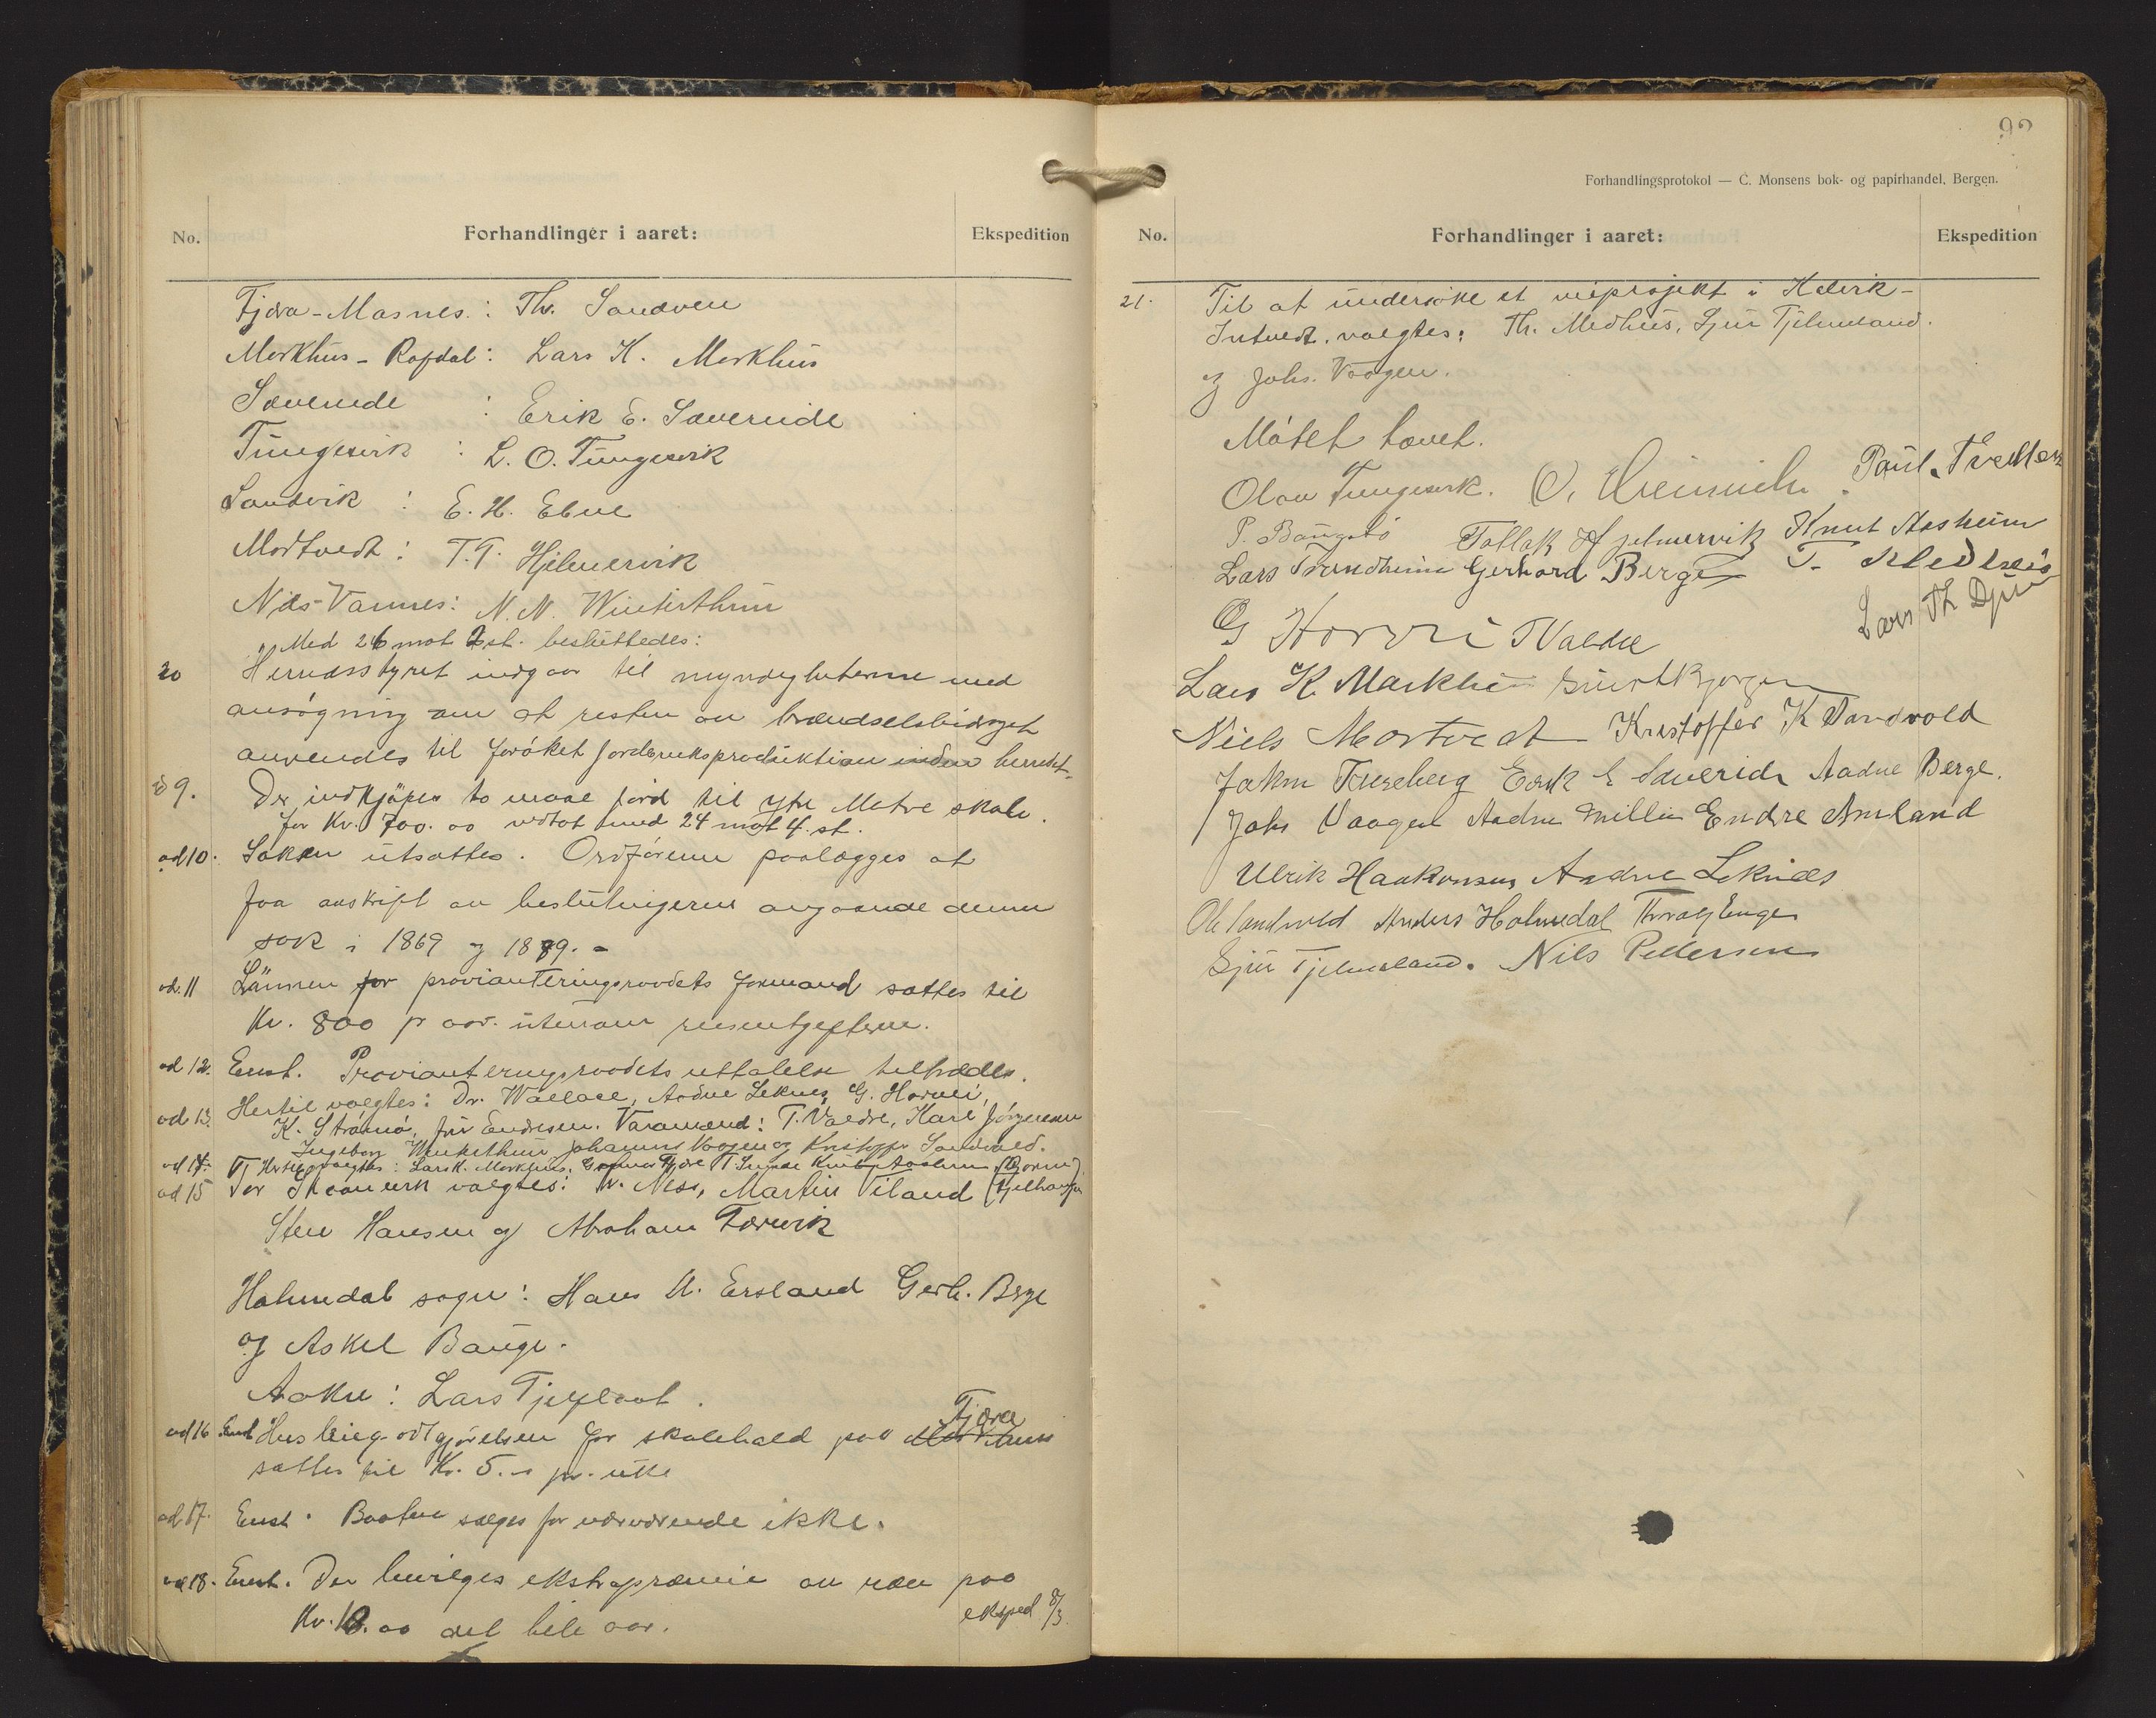 No.
Forhandlinger i aaret:
Ekspedition
Fjæra-Masnes: Th. Sandven
Markhus - Rafdal: Lars K. Markhus
Sæverude : Erik E. Sæverude
Tungesvik : L. O. Tungesvik
Sandvik : E. H. Ebne
Mortvedt: T. T. Hjelmervik
Næs-Vannes: N. N. Winterthun
Med 26 mot 2 st. besluttedes:
20 Herredsstyret indgaar til myndigheterne med
ansøgning om at resten av brændselsbidraget
anvendes til forøket jordbruksproduktion inden herredet.
9. Der indkjøpes to maal jord til ytre Matre skole
for Kr. 700.00 vedtat med 24 mot 4 st.
ad 10. Saken utsattes. Ordføreren paalægges at
faa avskrift av beslutningerne angaaende denne
sak i 1869 og 1879. -
ad. 11 Lønnen for provianteringsraadets formand sattes til
Kr. 800 pr aar. utenom reiseutgifterne.
ad 12. Enst. Provianteringsraadets uttalelse tiltrædes.
ad 13. Hertil valgtes: Dr. Wallace, Aadne Leknes, G. Horvei,
K. Strømø, fru Endresen. Varamænd: T. Valdre, Karl Jørgensen
Ingeborg Winterthun, Johannes Vaagen og Kristoffer Sandvold.
ad 14. Hertil valgtes: Lars K. Markhus, Fjære T. Knut Aasheim
ad 15 For Skaanevik valgtes: N. Ness, Martin Viland
Sten Hansen og Abraham Tørvik
Holmedal sogn: Hans A. Ersland Gerh. Berge
og Askel Bauge.
Aakre: Lars Tjelflaat.
ad 16 Enst Husleiegodtgjørelsen for skolehald paa Fjære
sattes til Kr. 5.- pr. uke
ad 17. Enst. Baaten sælges for nærværende ikke.
ad 18. Enst. Der bevilges ekstrapræmie av ræv paa
Kr. 10.00 det hele aar.
eksped 8/3
Forhandlingsprotokol — C. Monsens bok- og papirhandel, Bergen.
No.
Forhandlinger i aaret:
Ekspedition
21. Til at undersøke et veiprosjekt i
valgtes: Th. Medhus, Sjur Tjelmeland
og Johs. Vaagen.
Møtet hævet.
Olav Tungesvik. O. Heinrich. Paul Tvedten
P. Baugstø Tollak Hjelmervik Knut Aasheim
Lars Trondheim Gerhard Berge T. Medhus
G Horvei T Valdre Lars Th
Lars K. Markhus
Niels Mortvedt Kristoffer K Sandvold
Jakov Erik E Sæverude Aadne Berge.
Johs Vaagen Aadne Endre Amland
Ulrik Haakonsen Aadne Leknæs
Ole Sandvold Anders Holmedal Enge
Sjur Tjelmeland. Nils Pedersen